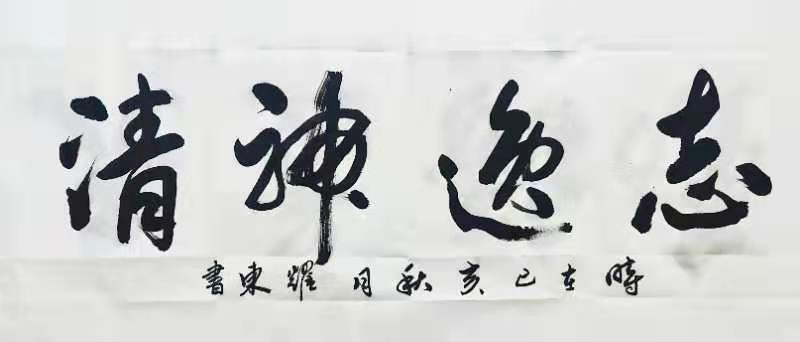 志逸神清
時在己亥秋月耀東書